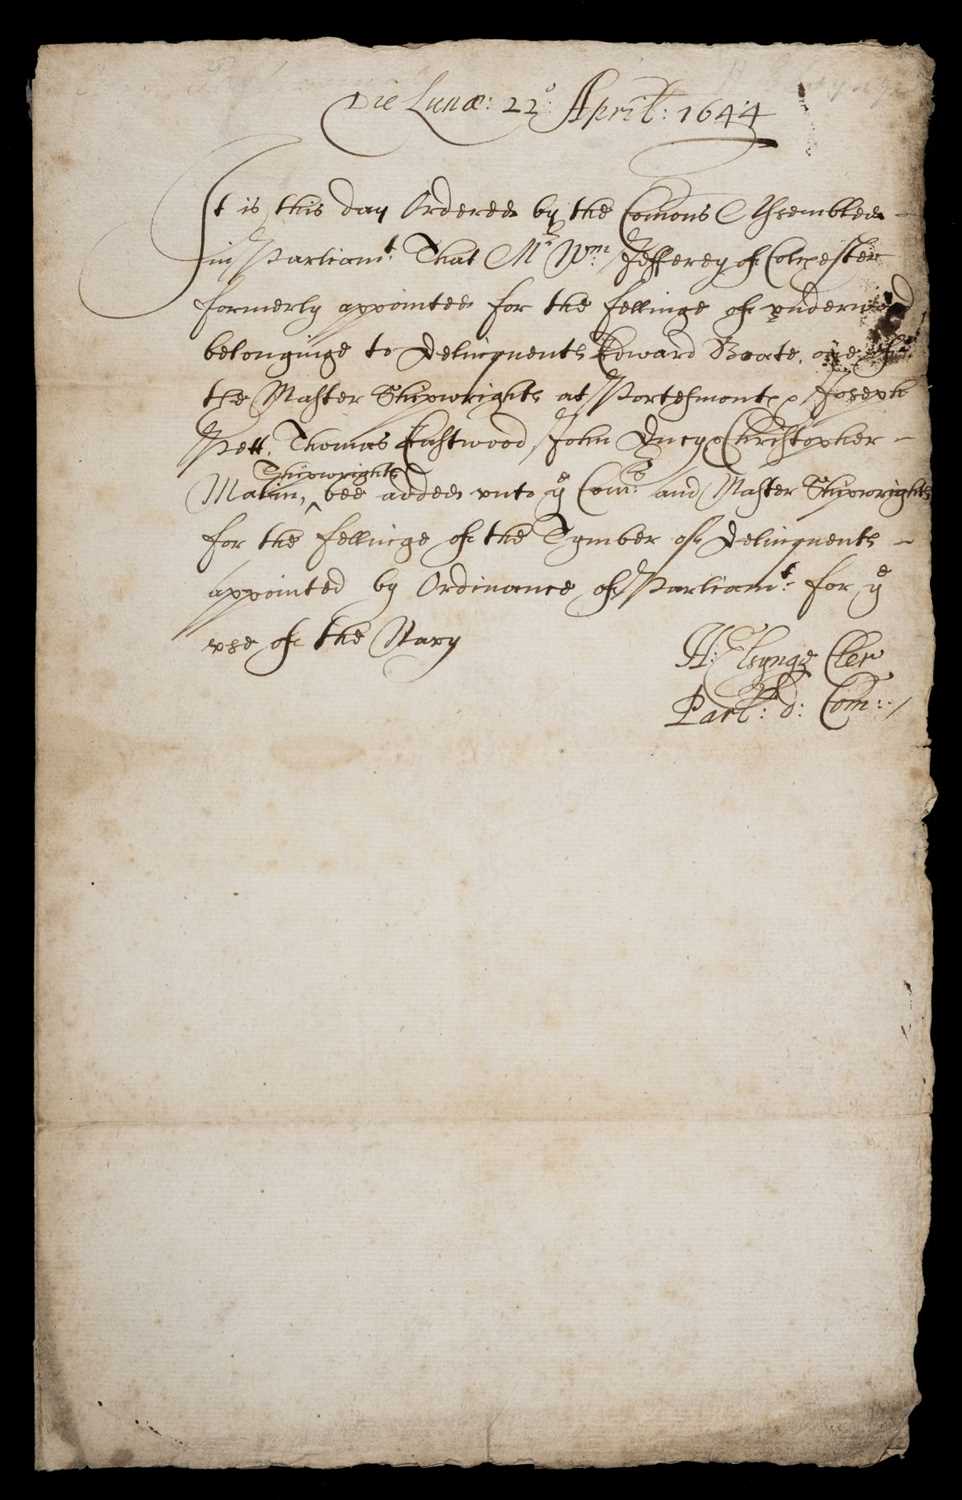 Die Lunæ: 22º: Aprill: 1644
It is this day Ordered by the Comons Assembled
in Parliamt. That Mr Wm: Jefferey of Colchester
formerly appointed for the fellinge of underwood
belonginge to Delinquents Edward Boate, one of
the Master Shipwrights at Portesmouth, Joseph
Pett, Thomas Eastwood, John Ducy, Christopher
Shipwrights
Malin, ^ bee added unto ye Comee: and Master Shipwrights
for the fellinge of the Tymber of Delinquents
appointed by Ordinance of Parliamt: for ye
use of the Navy
H: Elsynge Cler
Parl: d: Com: